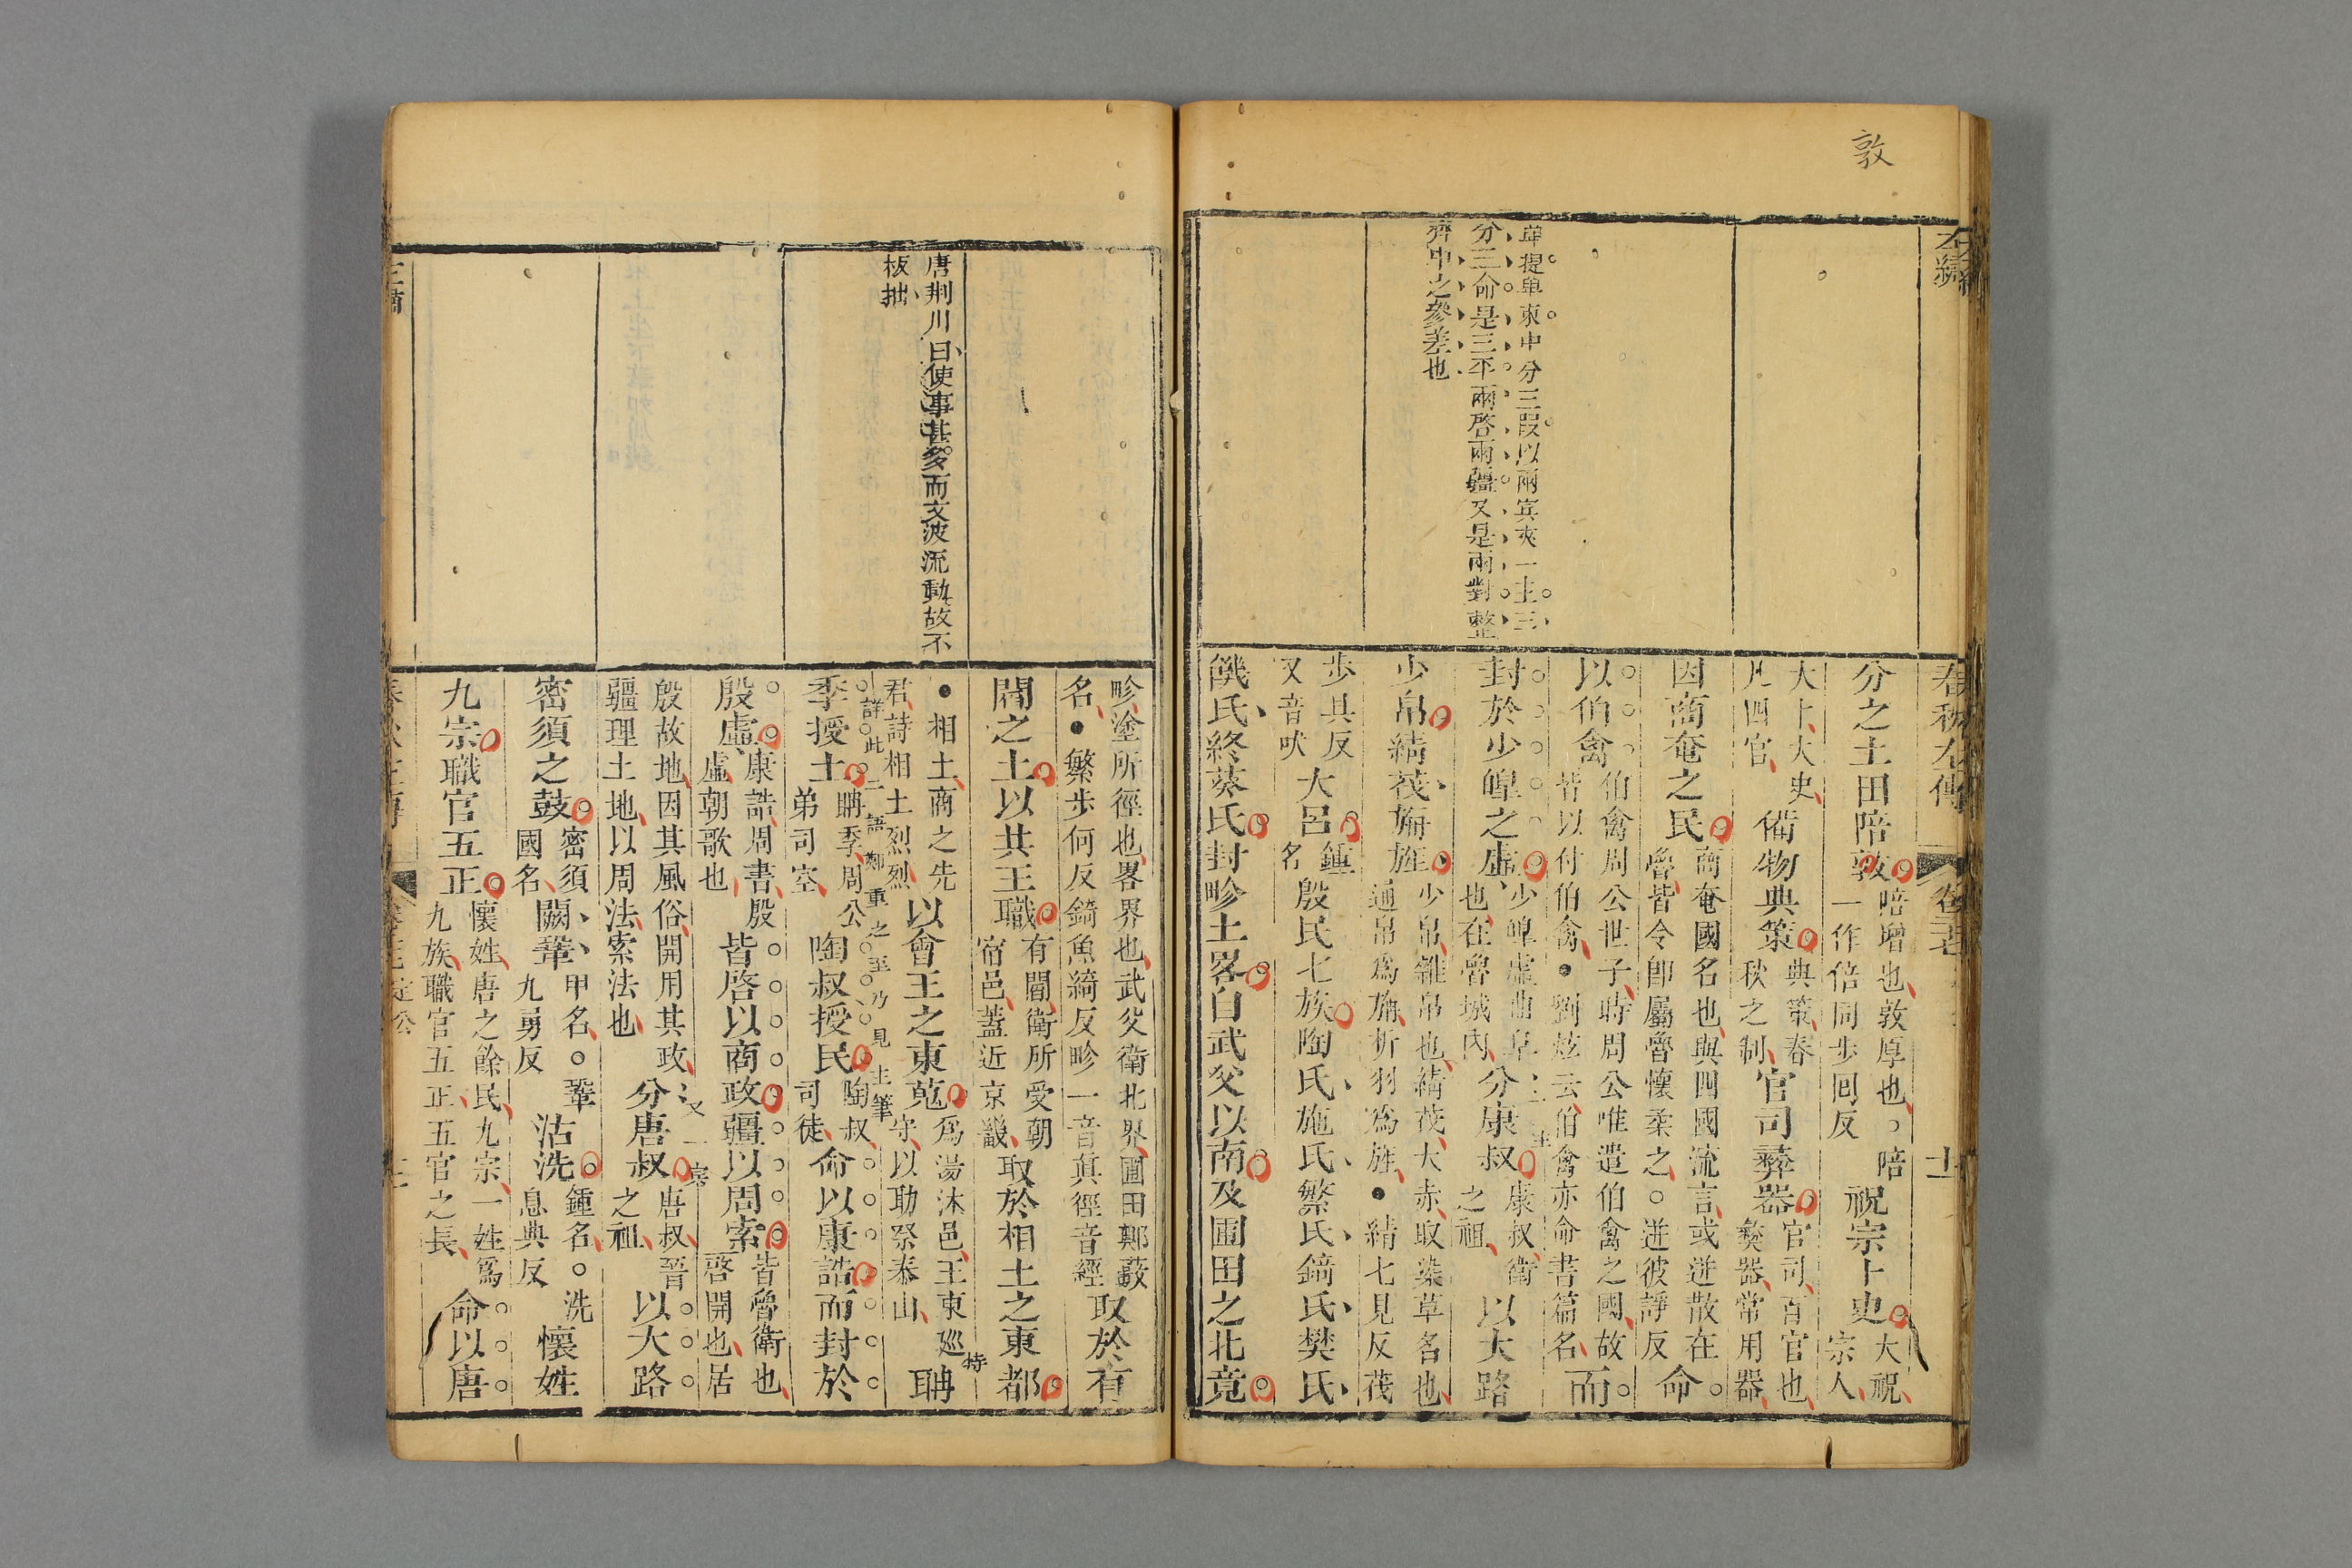 敦
左繡
春秋左傳
單提單束中分三段以兩賓夾一主三
分三命是三平兩啓兩疆又是兩對整
齊中之參差也
分之土田陪敦陪增也敦厚也陪
一作倍同步回反祝宗卜史大祝
宗人
大卜大史
凡四官備物典策典策春
秋之制官司彝器官司百官也
彝器常用器
因商奄之民商奄國名也與四國流言或迸散在
魯皆令卽屬魯懷柔之。迸彼諍反命
以伯禽伯禽周公世子時周公唯遣伯禽之國故
皆以付伯禽●劉炫云伯禽亦命書篇名而
封於少皥之虛少皥虛曲阜
也在魯城內分康叔康叔衛
之祖以大路
少帛綪茷旃旌少帛雜帛也綪茷大赤取染草名也
通帛爲旃析羽爲旌●綪七見反茷
步具反
又音吠大呂鍾
名殷民七族陶氏施氏繁氏錡氏樊氏
饑氏終葵氏封畛土畧自武父以南及圃田之北竟
唐荆川曰使事甚多而文波流動故不
板拙
畛塗所徑也畧界也武父衛北界圃田鄭藪
名●繁步何反錡魚綺反畛一音眞徑音經取於有
閻之土以其王職有閻衛所受朝
宿邑蓋近京畿取於相土之東都
●相土商之先
君詩相土烈烈以會王之東蒐爲湯沐邑王東巡
守以助祭泰山聃
詳此二語鄭重之至乃見主筆
季授土聃季周公
弟司空陶叔授民陶叔
司徒命以康誥而封於
殷虛康誥周書殷
虛朝歌也皆啓以商政疆以周索皆魯衛也
啓開也居
殷故地因其風俗開用其政
疆理土地以周法索法也分唐叔唐叔晉
之祖以大路
密須之鼓密須
國名闕鞏甲名。鞏
九勇反沽洗鍾名。洗
息典反懷姓
九宗職官五正懷姓唐之餘民九宗一姓爲
九族職官五正五官之長命以唐